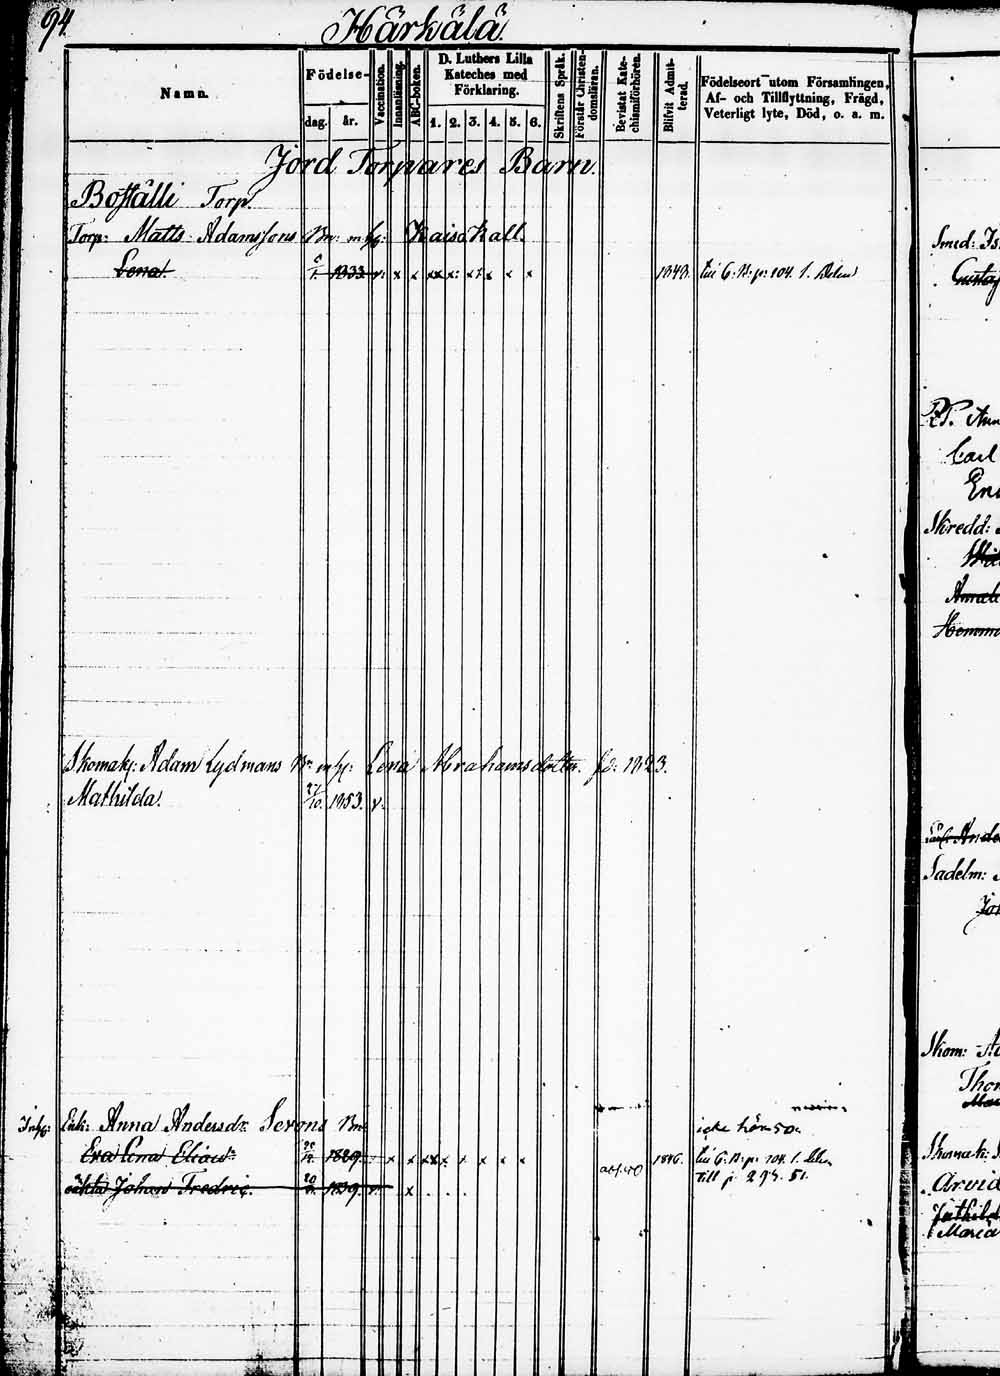 94.
Härkälä
Namn.
Födelse-
dag.
år.
Vaccination.
Innanläsning.
ABC-boken.
D. Luthers Lilla
Kateches med
Förklaring.
1. 2. 3. 4. 5. 6.
Skriftens Språk.
Förstår Christen-
domsläran.
Bevistat Kate-
chismiförhören.
Blifvit Admit-
terad.
Födelseort utom Församlingen,
Af- och Tillflyttning, Frägd,
Veterligt lyte, Död, o. a. m.
Jord Torpares Barn.
Boställi Torp.
Torp: Matts Adamssons Bn: m. hu: Kaisa Kall.
Lena. 1833 v. x x xx x: x x x x 1848. G: B: p: 104. 1.
Skomak: Adam Lydmans Bn. Lena Abrahamsdotter. fd: 1823.
Mathilda. 27/10. 1853. v.
Inh: Enk: Anna Andersdr. Serons Bn:
icke här 50.
Eva Lena Eliaed: 1829. x x xx x. x x x x 1846. G: B: p: 104. 1.
till p. 51.
Johan Fredric. 1839. v. x . . . .
Smed:
Gustaf
Carl
Skredd:
Sadelm:
Skom:
Skomak:
Arvid
Maria